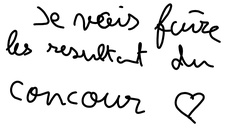 Je vais faire
les resultat du
concour ♡